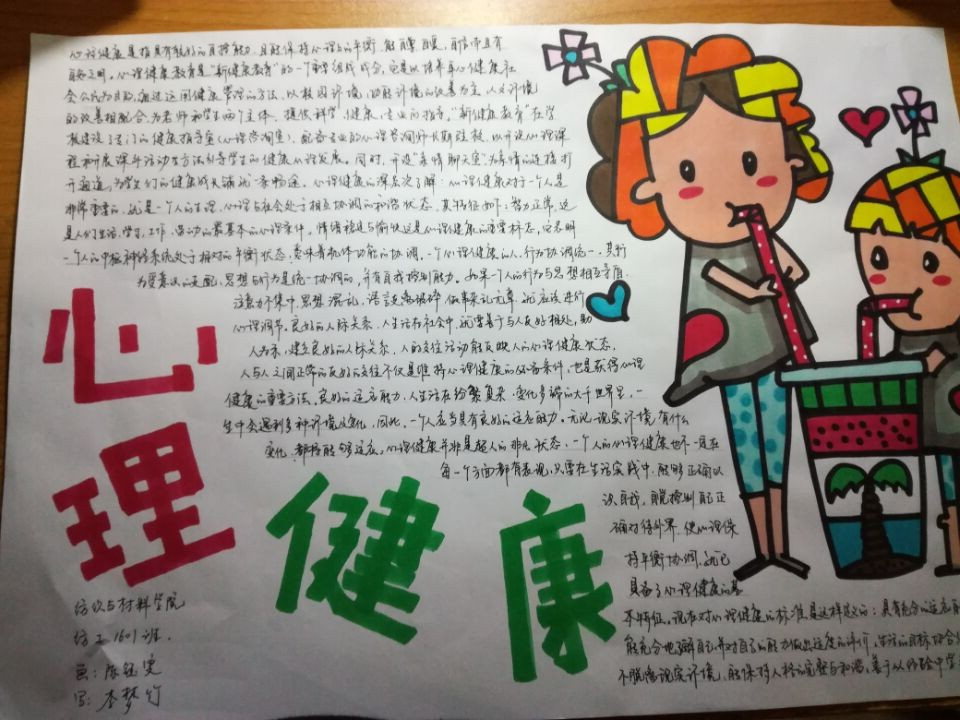 心理健康是指具有较好的自控能力,且能保持心理上的平衡,能自尊、自爱、自信而且有
自知之明。心理健康教育是“新健康教育”的一个重要组成成分,它是以培养身心健康社
会公民为目的,通过运用健康管理的方法,以校园环境、功能环境的改善为主,人文环境
的改善相配合,为老师和学生两个主体,提供科学、健康、专业的指导。“新健康教育”在学
校建设了专门的健康指导室(心理咨询室),配备专业的心理咨询师长期驻校,以开设心理课
程和开展课外活动等方法引导学生的健康心理发展。同时,开通“亲情聊天室”为亲情的连接打
开通道,为学生们的健康成长铺就一条畅途。心理健康的深层次了解:心理健康对于一个人是
非常重要的,就是一个人的生理、心理与社会处于相互协调的和谐状态,其特征如下:智力正常,这
是人们生活、学习、工作、劳动的最基本的心理条件。情绪稳定与愉快这是心理健康的重要标志,它表明
一个人的中枢神经系统处于相对的平衡状态,意味着机体功能的协调。一个心理健康的人,行为协调统一,其行
为受意识的支配,思想与行为是统一协调的,并有自我控制能力。如果一个人的行为与思想相互矛盾,
注意力不集中,思想混乱,语言支离破碎,做事杂乱无章,就应该进行
心理调节。良好的人际关系,人生活在社会中,就要善于与人友好相处,助
人为乐,建立良好的人际关系,人的交往活动能反映人的心理健康状态,
人与人之间正常的友好的交往不仅是维持心理健康的必备条件,也是获得心理
健康的重要方法。良好的适应能力,人生活在纷繁复杂、变化多端的大千世界里,一
生中会遇到多种环境及变化,因此,一个人应当具有良好的适应能力。无论现实环境有什么
变化,都将能够适应。心理健康并非是超人的非凡状态,一个人的心理健康也不一定在
每一个方面都有表现,只要在生活实践中,能够正确认
识自我,自觉控制自己,正
确对待外界,使心理保
持平衡协调,就已
具备了心理健康的基
本特征。现在对心理健康的标准是这样定义的:具有充分的适应
能充分地了解自己,并对自己的能力做出适度的评价,生活的目标切合
不脱离现实环境,能保持人格的完整与和谐,善于从经验中学
心理健康
纺织与材料学院
纺工1601班.
画:陈钰
写:李梦竹